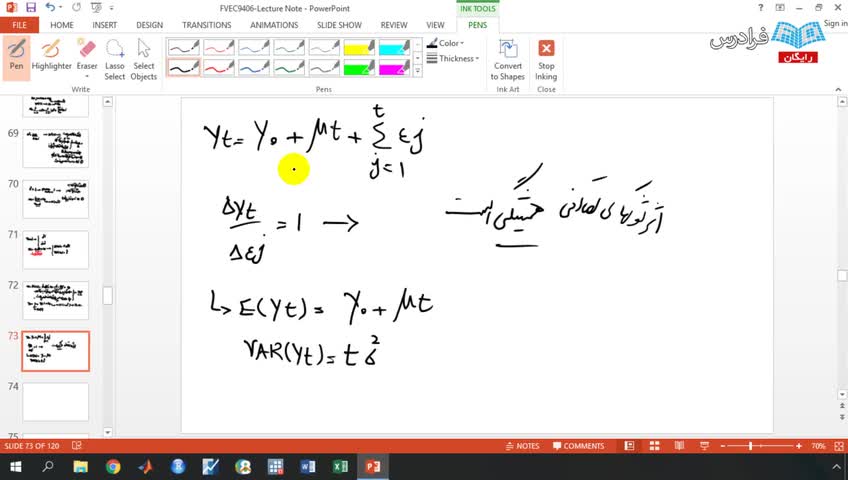 FVEC9406-Lecture Note - PowerPoint
INK TOOLS
FILE HOME INSERT DESIGN TRANSITIONS ANIMATIONS SLIDE SHOW REVIEW VIEW PENS
Sign in
فرادرس
رایگان
Pen
Highlighter
Eraser
Lasso Select
Select Objects
Color
Thickness
Convert to Shapes
Stop Inking
Write
Pens
Ink Art
Close
69
70
71
72
73
74
75
Yt = Y0 + μt + Σ εj
t
j=1
ΔYt / Δεj = 1 →
اثر شوکهای تصادفی همیشگی است
↳ E(Yt) = Y0 + μt
VAR(Yt) = tσ²
SLIDE 73 OF 120
NOTES
COMMENTS
70%
9:06